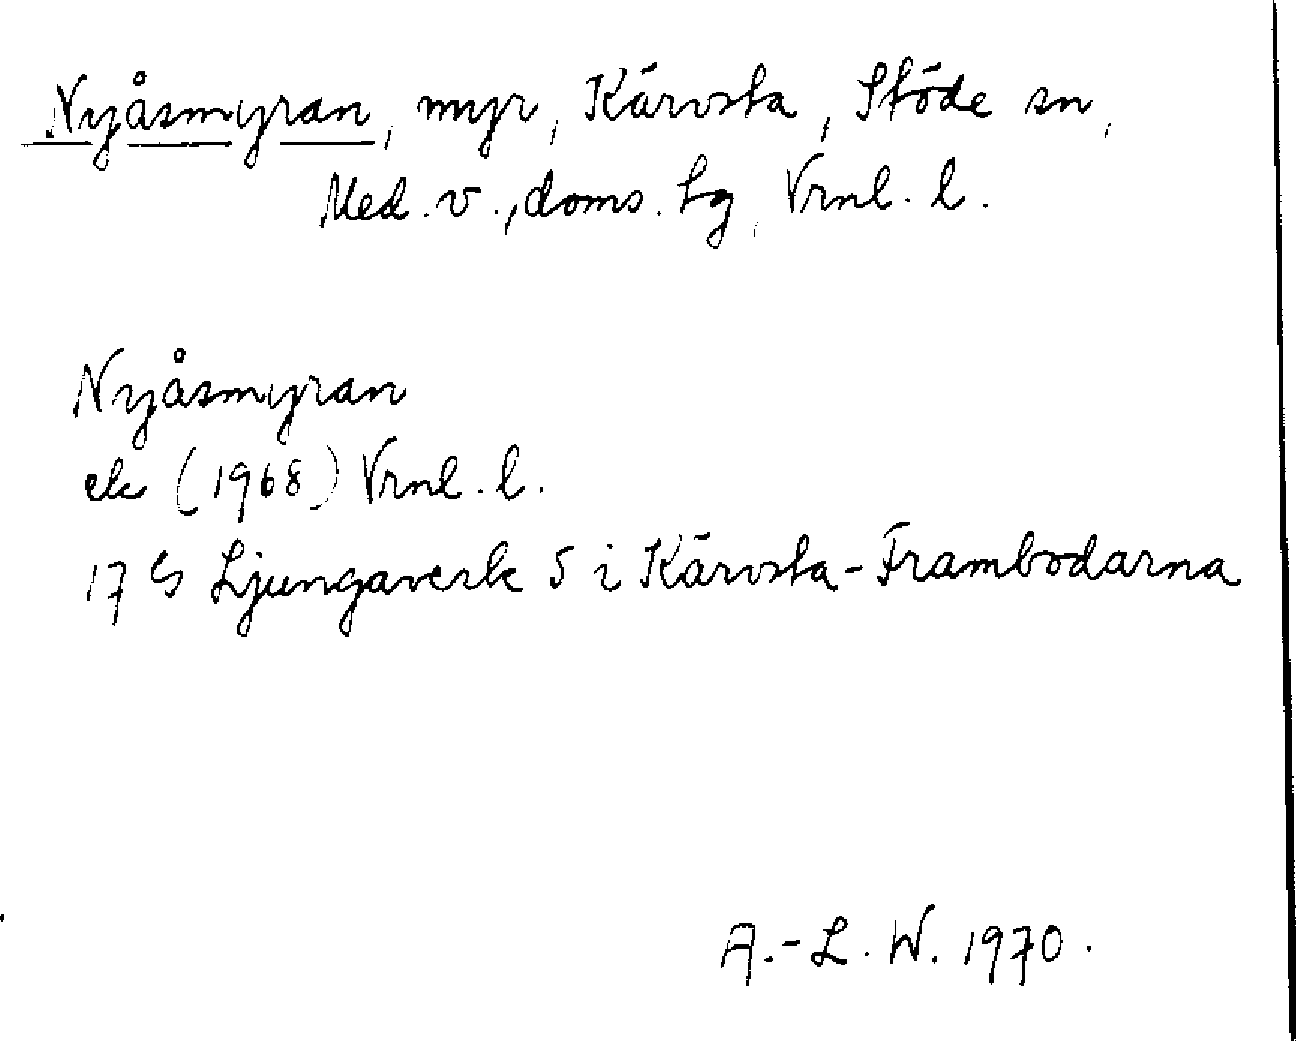 Nyåsmyran, myr, Kärvsta, Stöde sn,
Med. v., doms. hg, Vrnl. l.
Nyåsmyran
ek (1968) Vrnl. l.
17 G Ljungaverk 5 i Kärvsta-Frambodarna
A.-L. W. 1970.